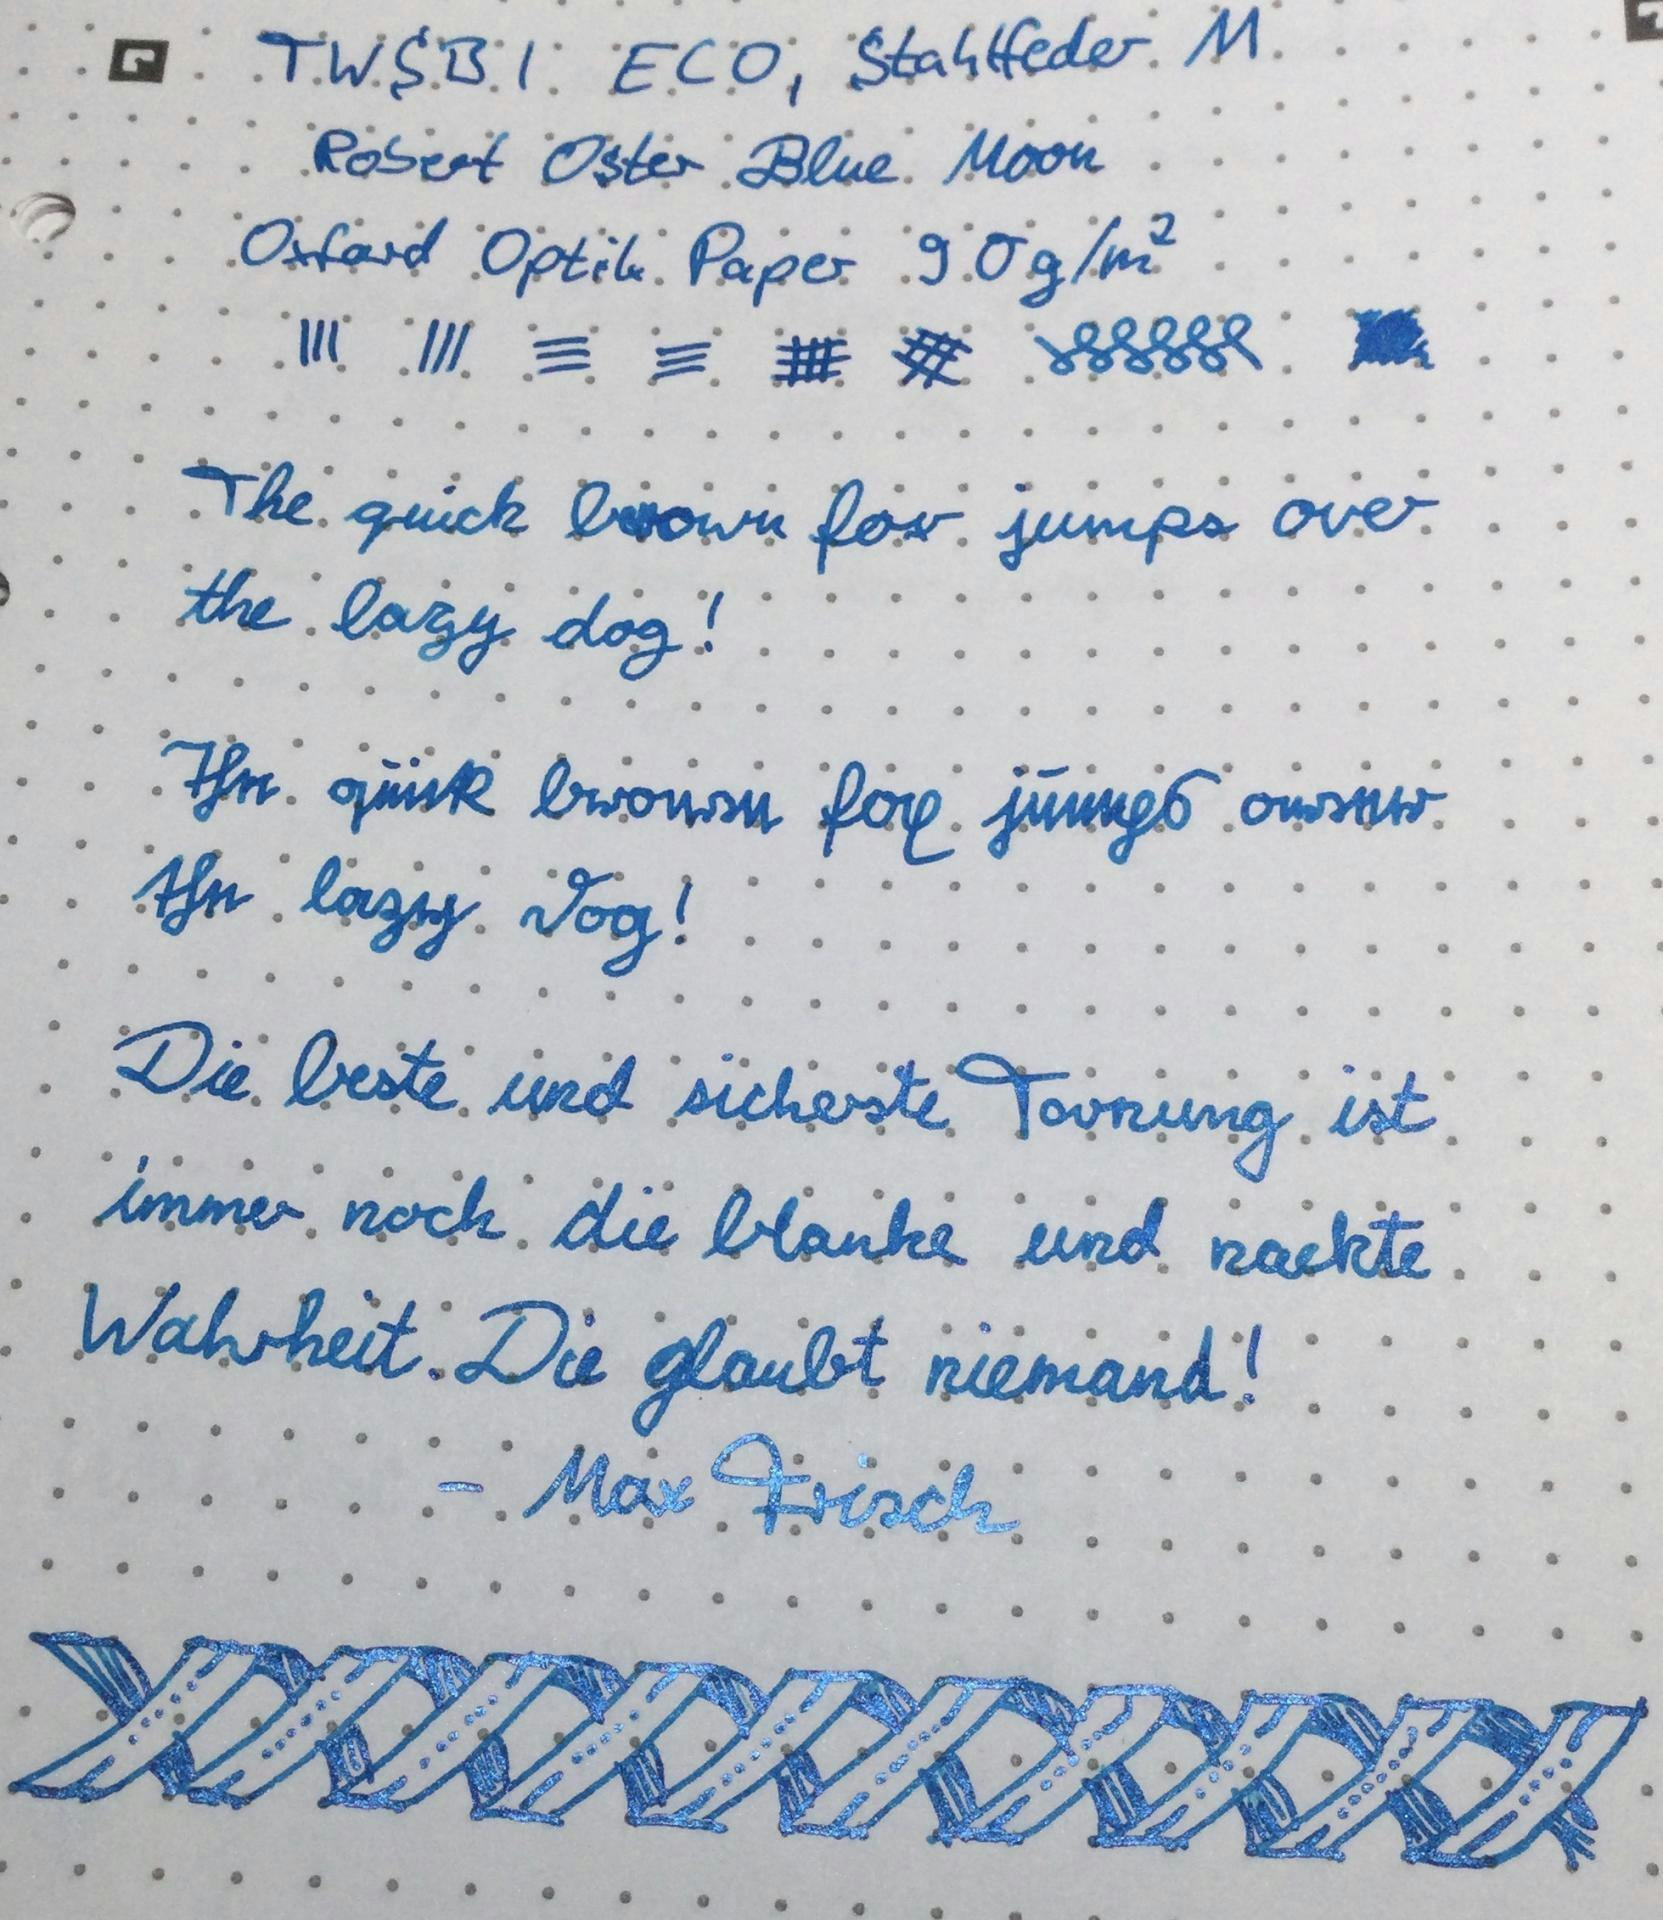 TWSBI ECO, Stahlfeder M
Robert Oster Blue Moon
Oxford Optik Paper 90g/m²
The quick brown fox jumps over
the lazy dog!
The quick brown fox jumps over
the lazy dog!
Die beste und sicherste Tarnung ist
immer noch die blanke und nackte
Wahrheit. Die glaubt niemand!
- Max Frisch